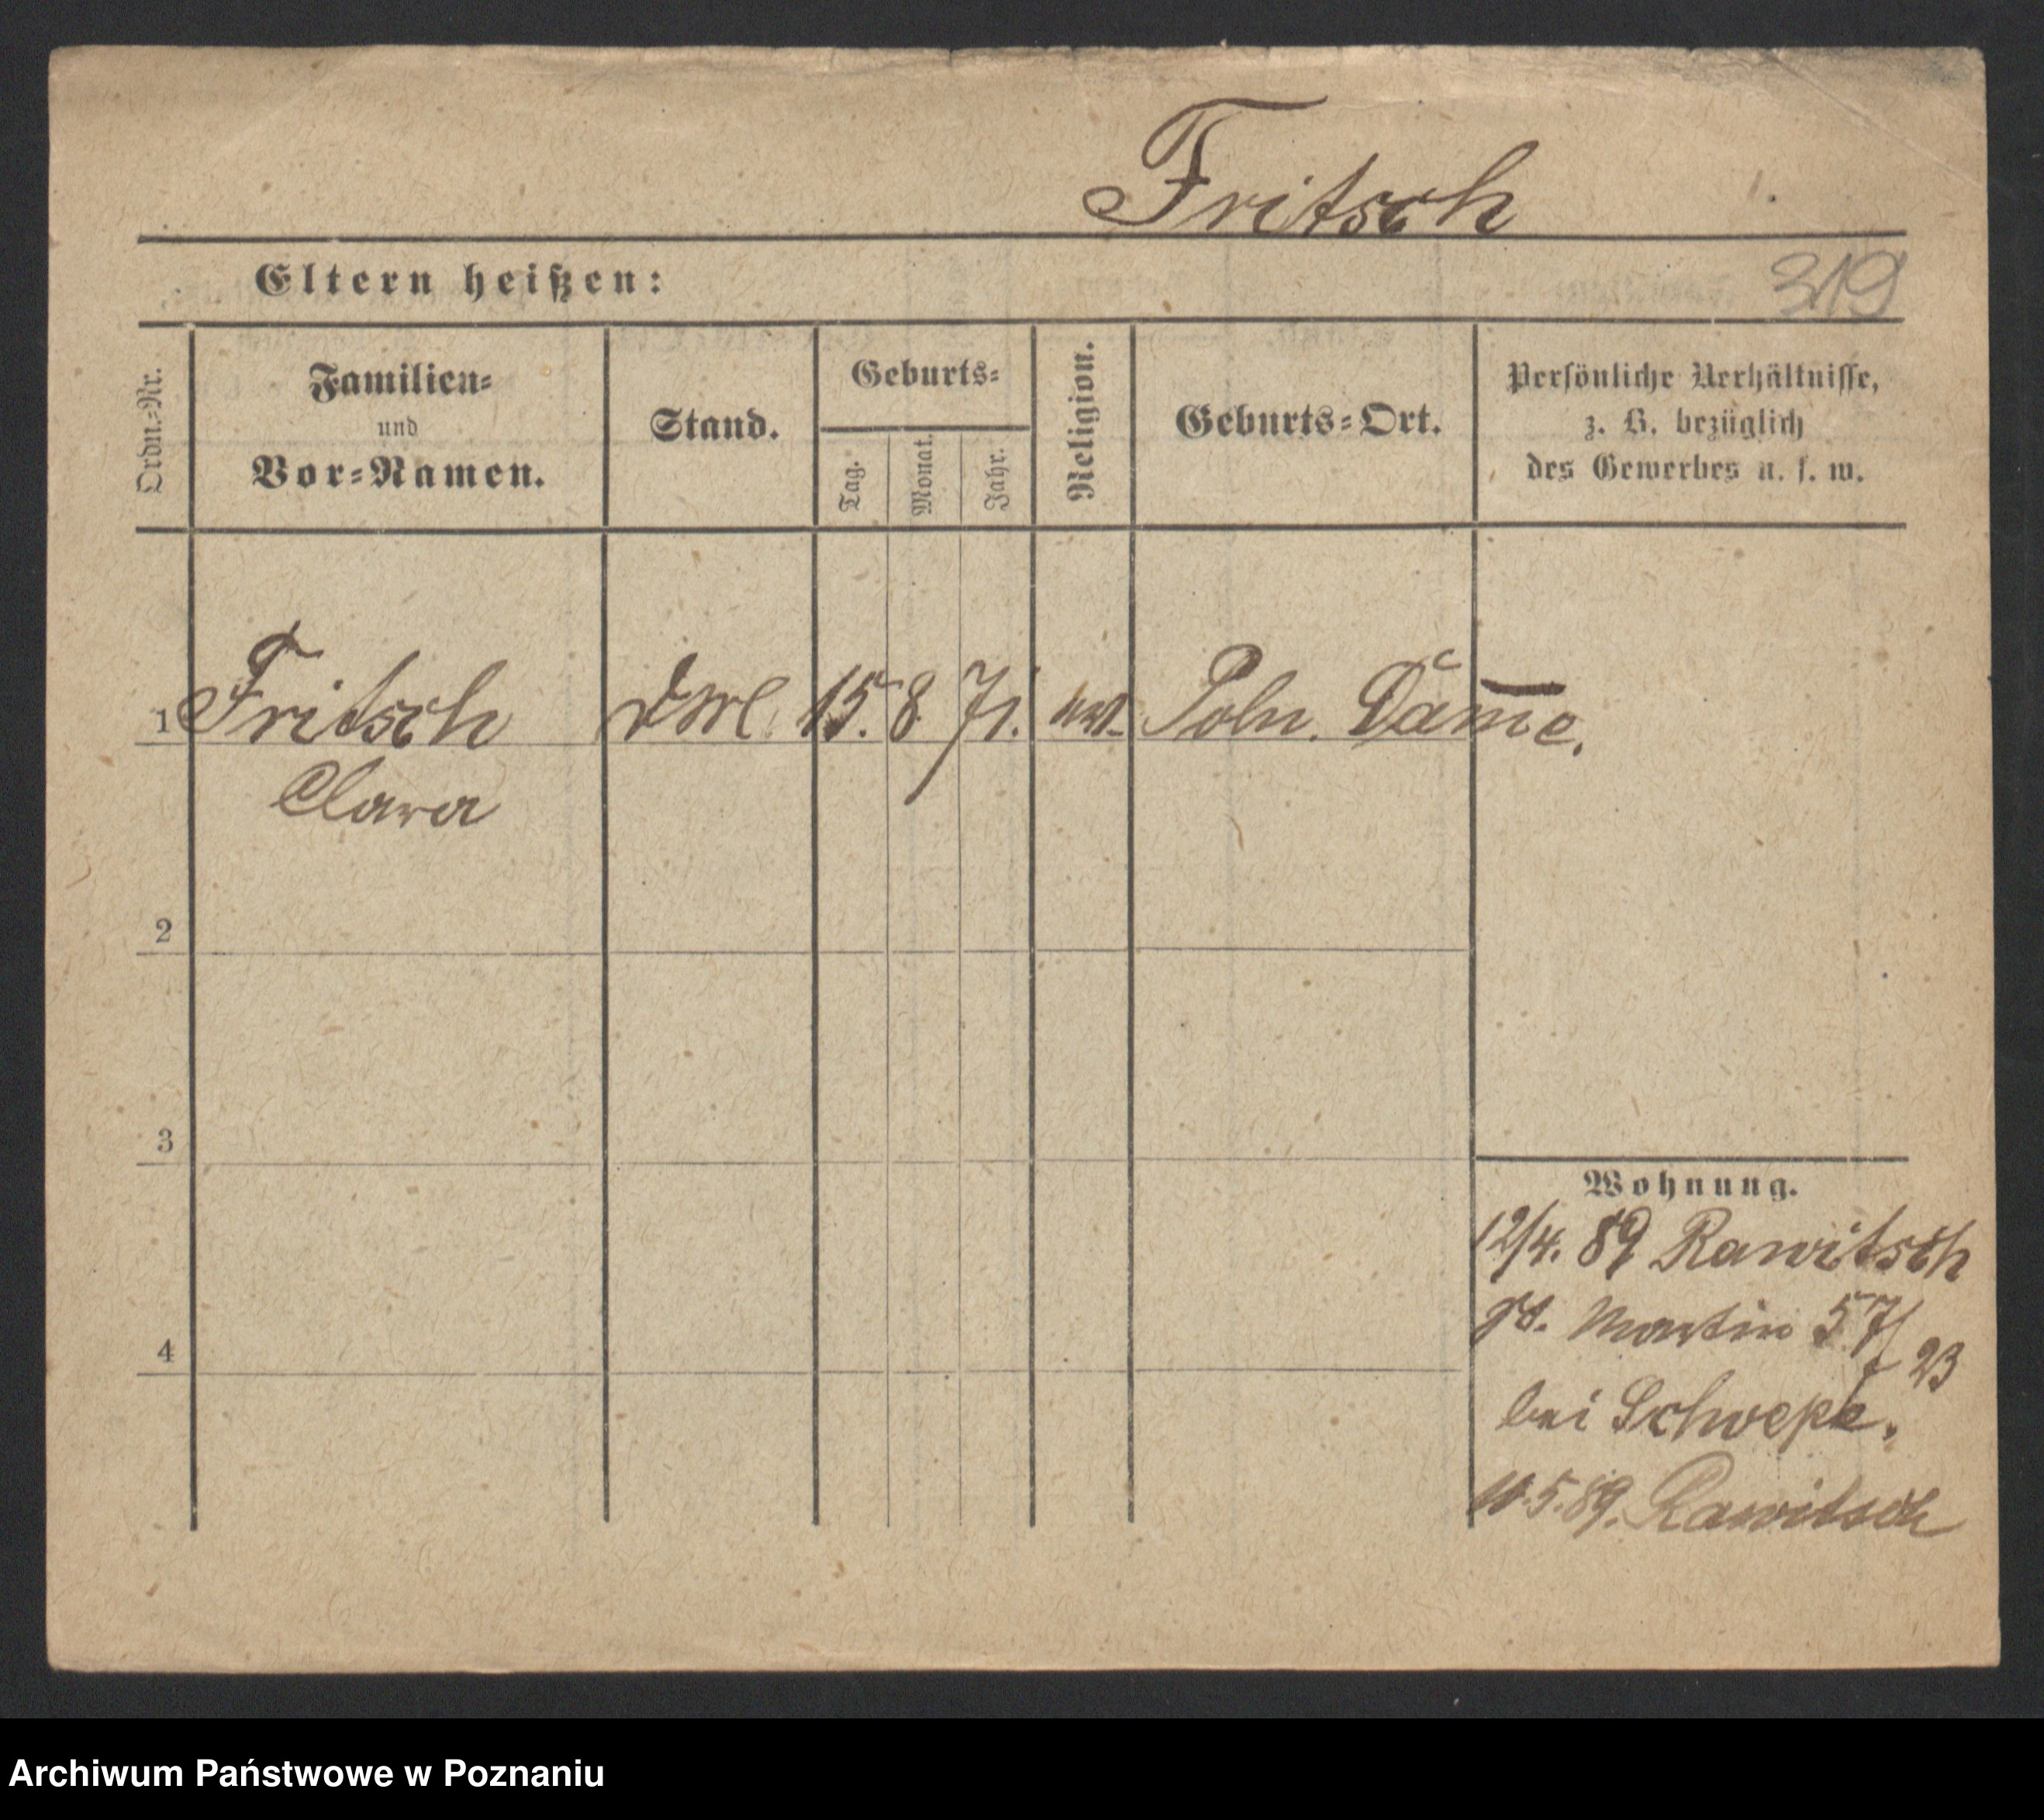 Fritsch
Eltern heißen:
319
Ordn.-Nr.
Familien-
und
Vor-Namen.
Stand.
Geburts-
Tag.
Monat.
Jahr.
Religion.
Geburts-Ort.
Persönliche Verhältnisse,
z. B. bezüglich
des Gewerbes u. s. w.
1 Fritsch 15. 8. 71. Poln. Damme.
Clara
2
3
4
Wohnung.
12/4. 89 Rawitsch
St. Martin 57/23
bei Schwepke.
5. 89. Rawitsch
Archiwum Państwowe w Poznaniu